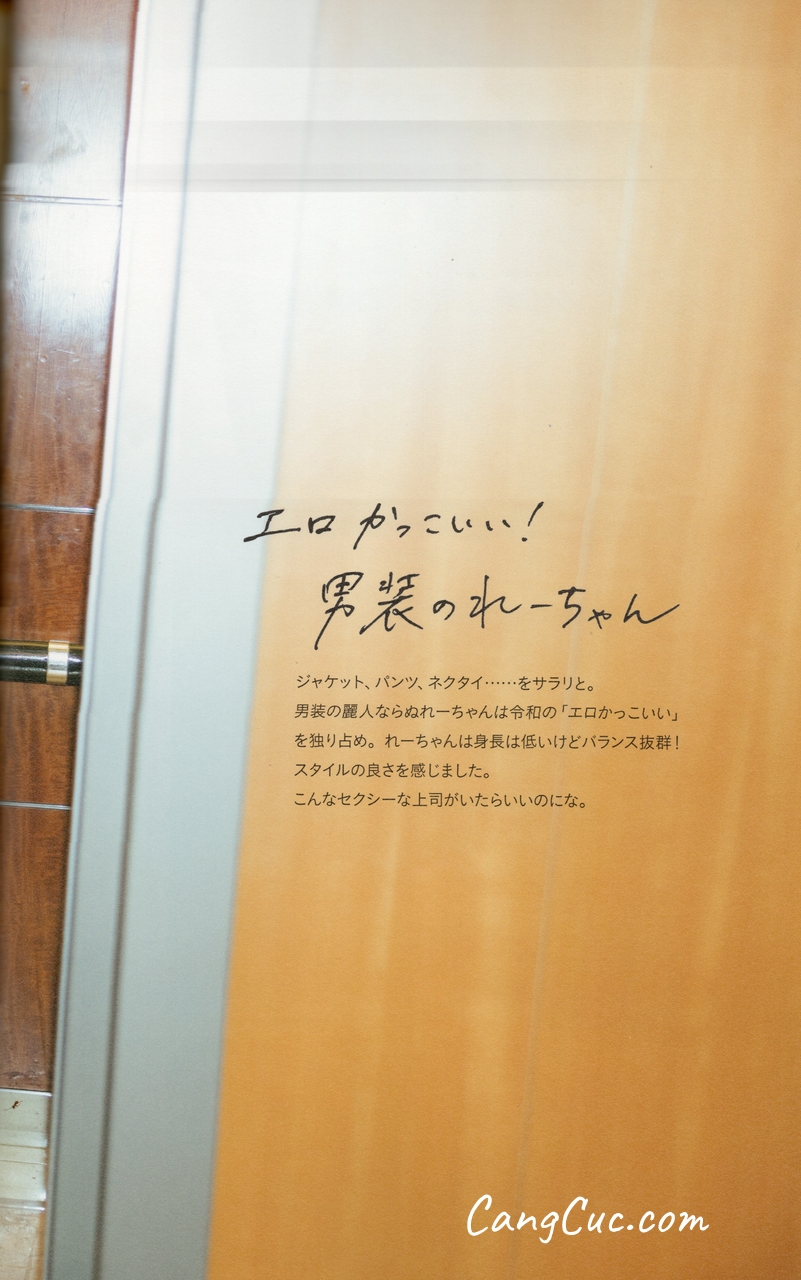 エロかっこいい!
男装のれーちゃん
ジャケット、パンツ、ネクタイ……をサラリと。
男装の麗人ならぬれーちゃんは令和の「エロかっこいい」
を独り占め。れーちゃんは身長は低いけどバランス抜群!
スタイルの良さを感じました。
こんなセクシーな上司がいたらいいのにな。
CangCuc.com